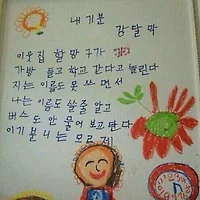 내 기분
강달막
이웃집 할망구가
가방 들고 학교 간다고 놀린다
지는 이름도 못 쓰면서
나는 이름도 쓸 줄 알고
버스도 안 물어보고 탄다
이 기분 니는 모르제